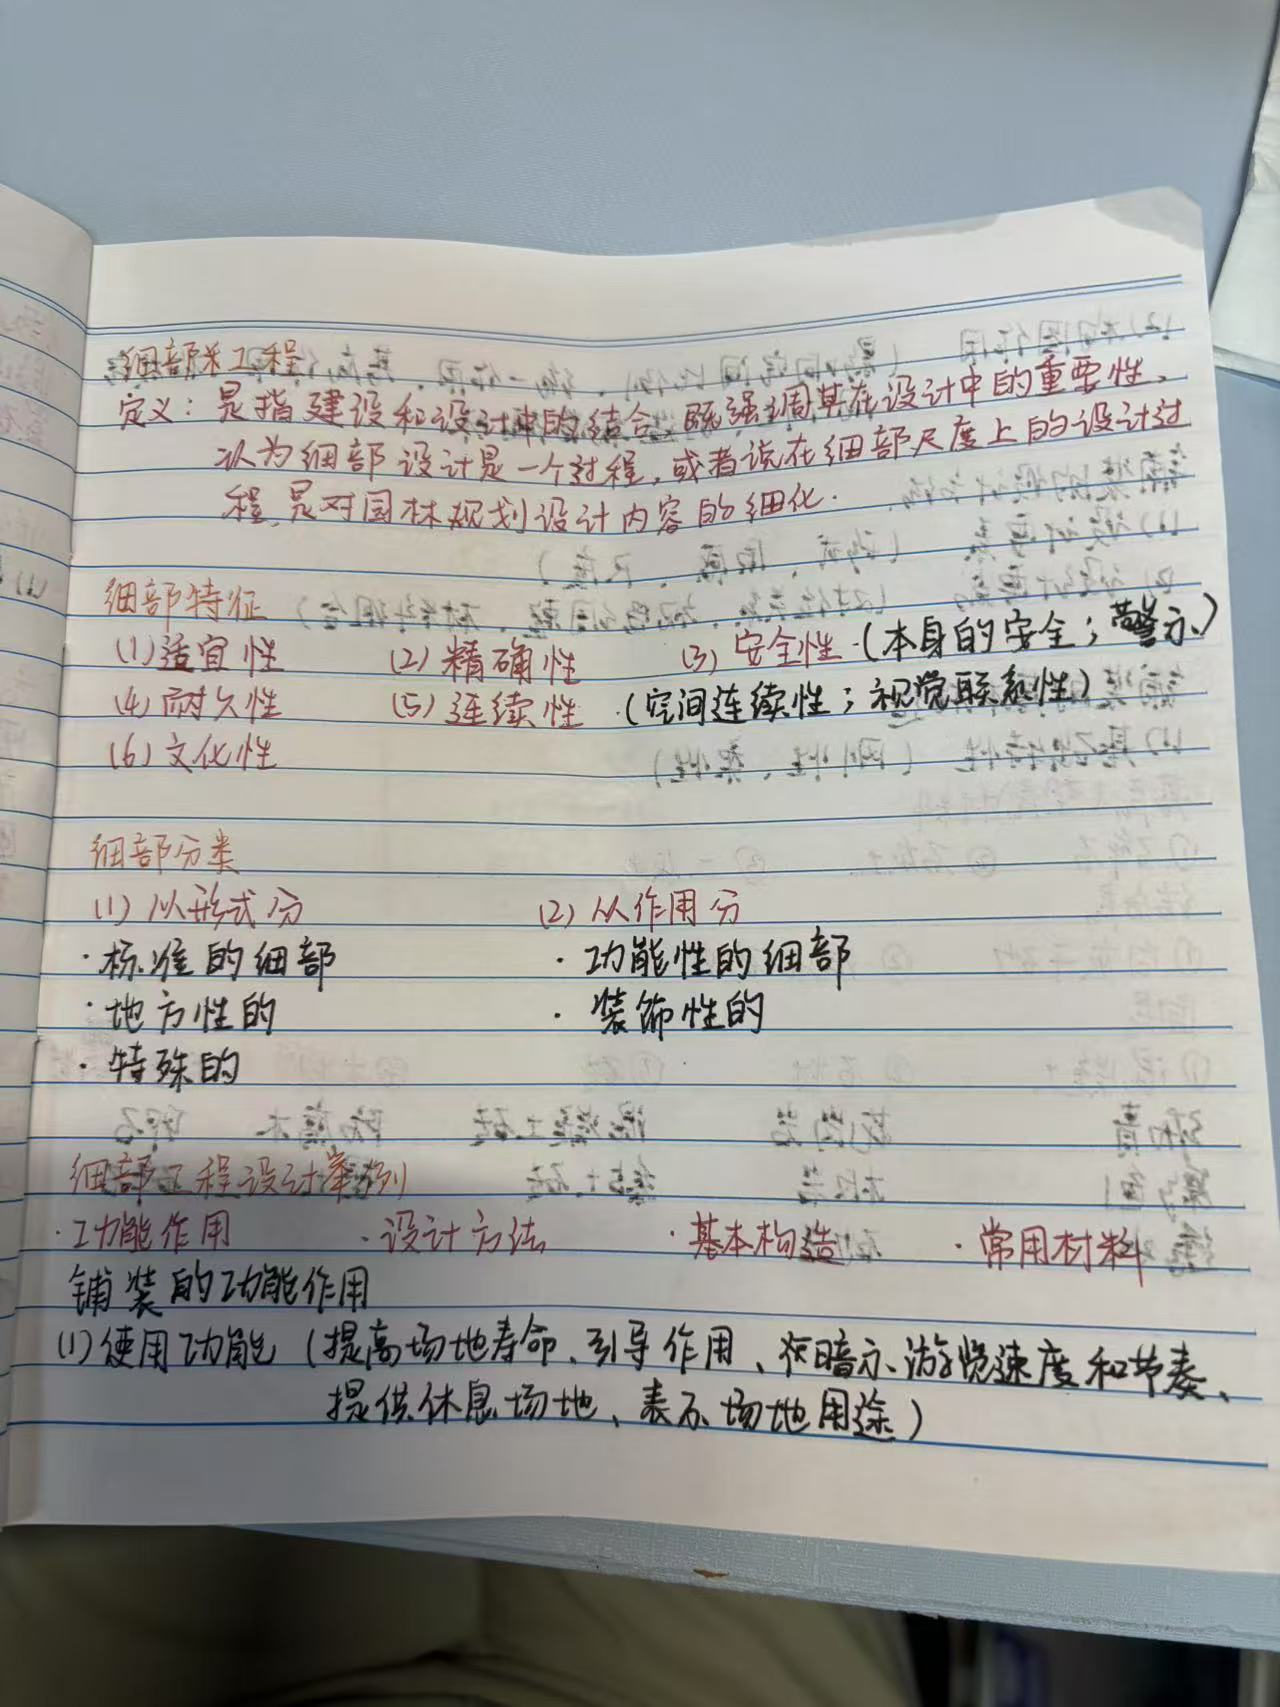 细部工程
定义：是指建设和设计中的结合，既强调其在设计中的重要性，
认为细部设计是一个过程，或者说在细部尺度上的设计过
程，是对园林规划设计内容的细化.
细部特征
(1)适宜性 (2)精确性 (3)安全性（本身的安全；警示）
(4)耐久性 (5)连续性（空间连续性；视觉联系性）
(6)文化性
细部分类
(1)以形式分 (2)从作用分
·标准的细部 ·功能性的细部
·地方性的 ·装饰性的
·特殊的
细部工程设计举例
·功能作用 ·设计方法 ·基本构造 ·常用材料
铺装的功能作用
(1)使用功能（提高场地寿命、引导作用、暗示游览速度和节奏、
提供休息场地、表示场地用途）